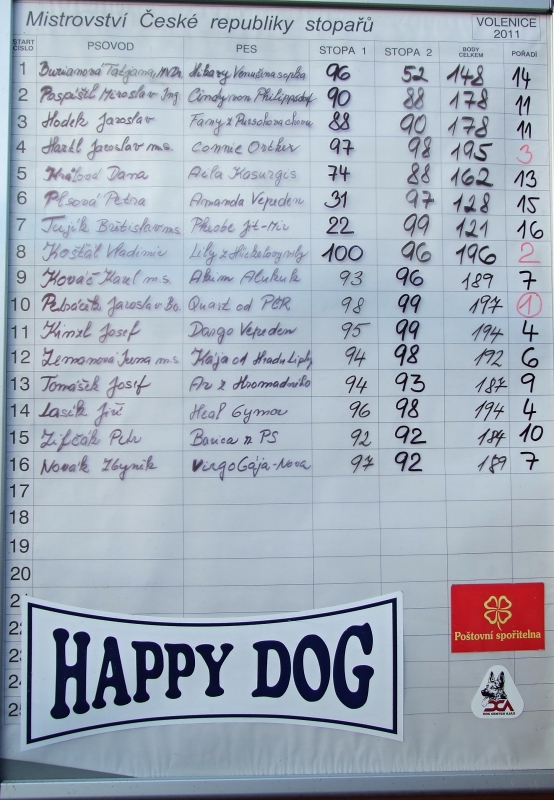 Mistrovství České republiky stopařů
VOLENICE 2011
START ČÍSLO PSOVOD PES STOPA 1 STOPA 2 BODY CELKEM POŘADÍ
1 Burianová Taťjana, MVDr. 96 52 148 14
2 Pospíšil Miroslav Ing Cindy von Philippsdorf 90 88 178 11
3 Hodek Jaroslav Fany z 88 90 178 11
4 Hartl Jaroslav m.s. Connie Orther 97 98 195 3
5 Králová Dana Aila Kasurgis 74 88 162 13
6 Plsová Petra Amanda Vepeden 31 97 128 15
7 Tuják Břetislav m.s. Phoebe 22 99 121 16
8 Košťál Vladimír Lily z 100 96 196 2
9 Kováč Karel m.s. Akim Alukuk 93 96 189 7
10 Jaroslav Quast od PČR 98 99 197 1
11 Kinzl Josef Dargo Vepeden 95 99 194 4
12 Zemanová Irena m.s. Kája od Hradu Lipky 94 98 192 6
13 Tomášek Josef Ar z Hromadního 94 93 187 9
14 Lasík Jiří Heal Gymor 96 98 194 4
15 Zifčák Petr z PS 92 92 184 10
16 Novák Zbyněk Virgo Gája-Nova 97 92 189 7
17
18
19
20
21
22
23
24
25
HAPPY DOG
Poštovní spořitelna
DCA
DOG CENTER AJAX